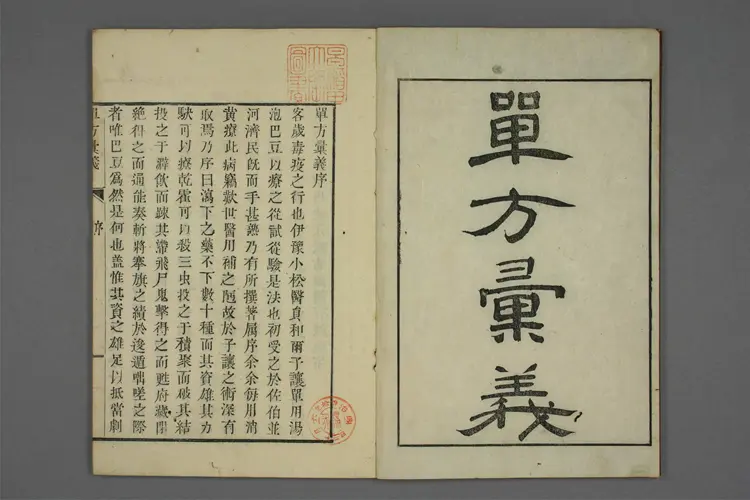 單方彙義
單方彙義序
客歲毒疫之行也伊豫小松醫真和爾子讓單用湯
泡巴豆以療之從試從驗是法也初受之於佐伯並
河濟民既而手甚熟乃有所撰著屬序余余每用消
黃療此病竊歎世醫用補之陋故於子讓之術深有
取焉乃序曰瀉下之藥不下數十種而其資雄其力
駃可以療乾霍可以殺三虫投之于積聚而破其結
投之于澼飲而踈其滯飛尸鬼擊得之而甦府藏閉
絶得之而通能奏斬將搴旗之績於逡遁喘嗟之際
者唯巴豆爲然是何也蓋惟其資之雄足以抵當劇
單方彙義
序